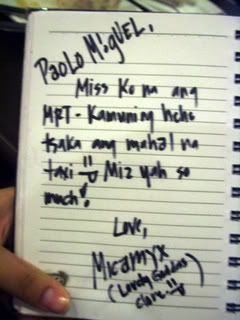 PAOLO MIGUEL,
Miss Ko na ang
MRT - Kamuning hehe
tsaka ang mahal na
taxi =) Miz yah so
much!
Love,
Micamyx
(Lovely
Clare =)